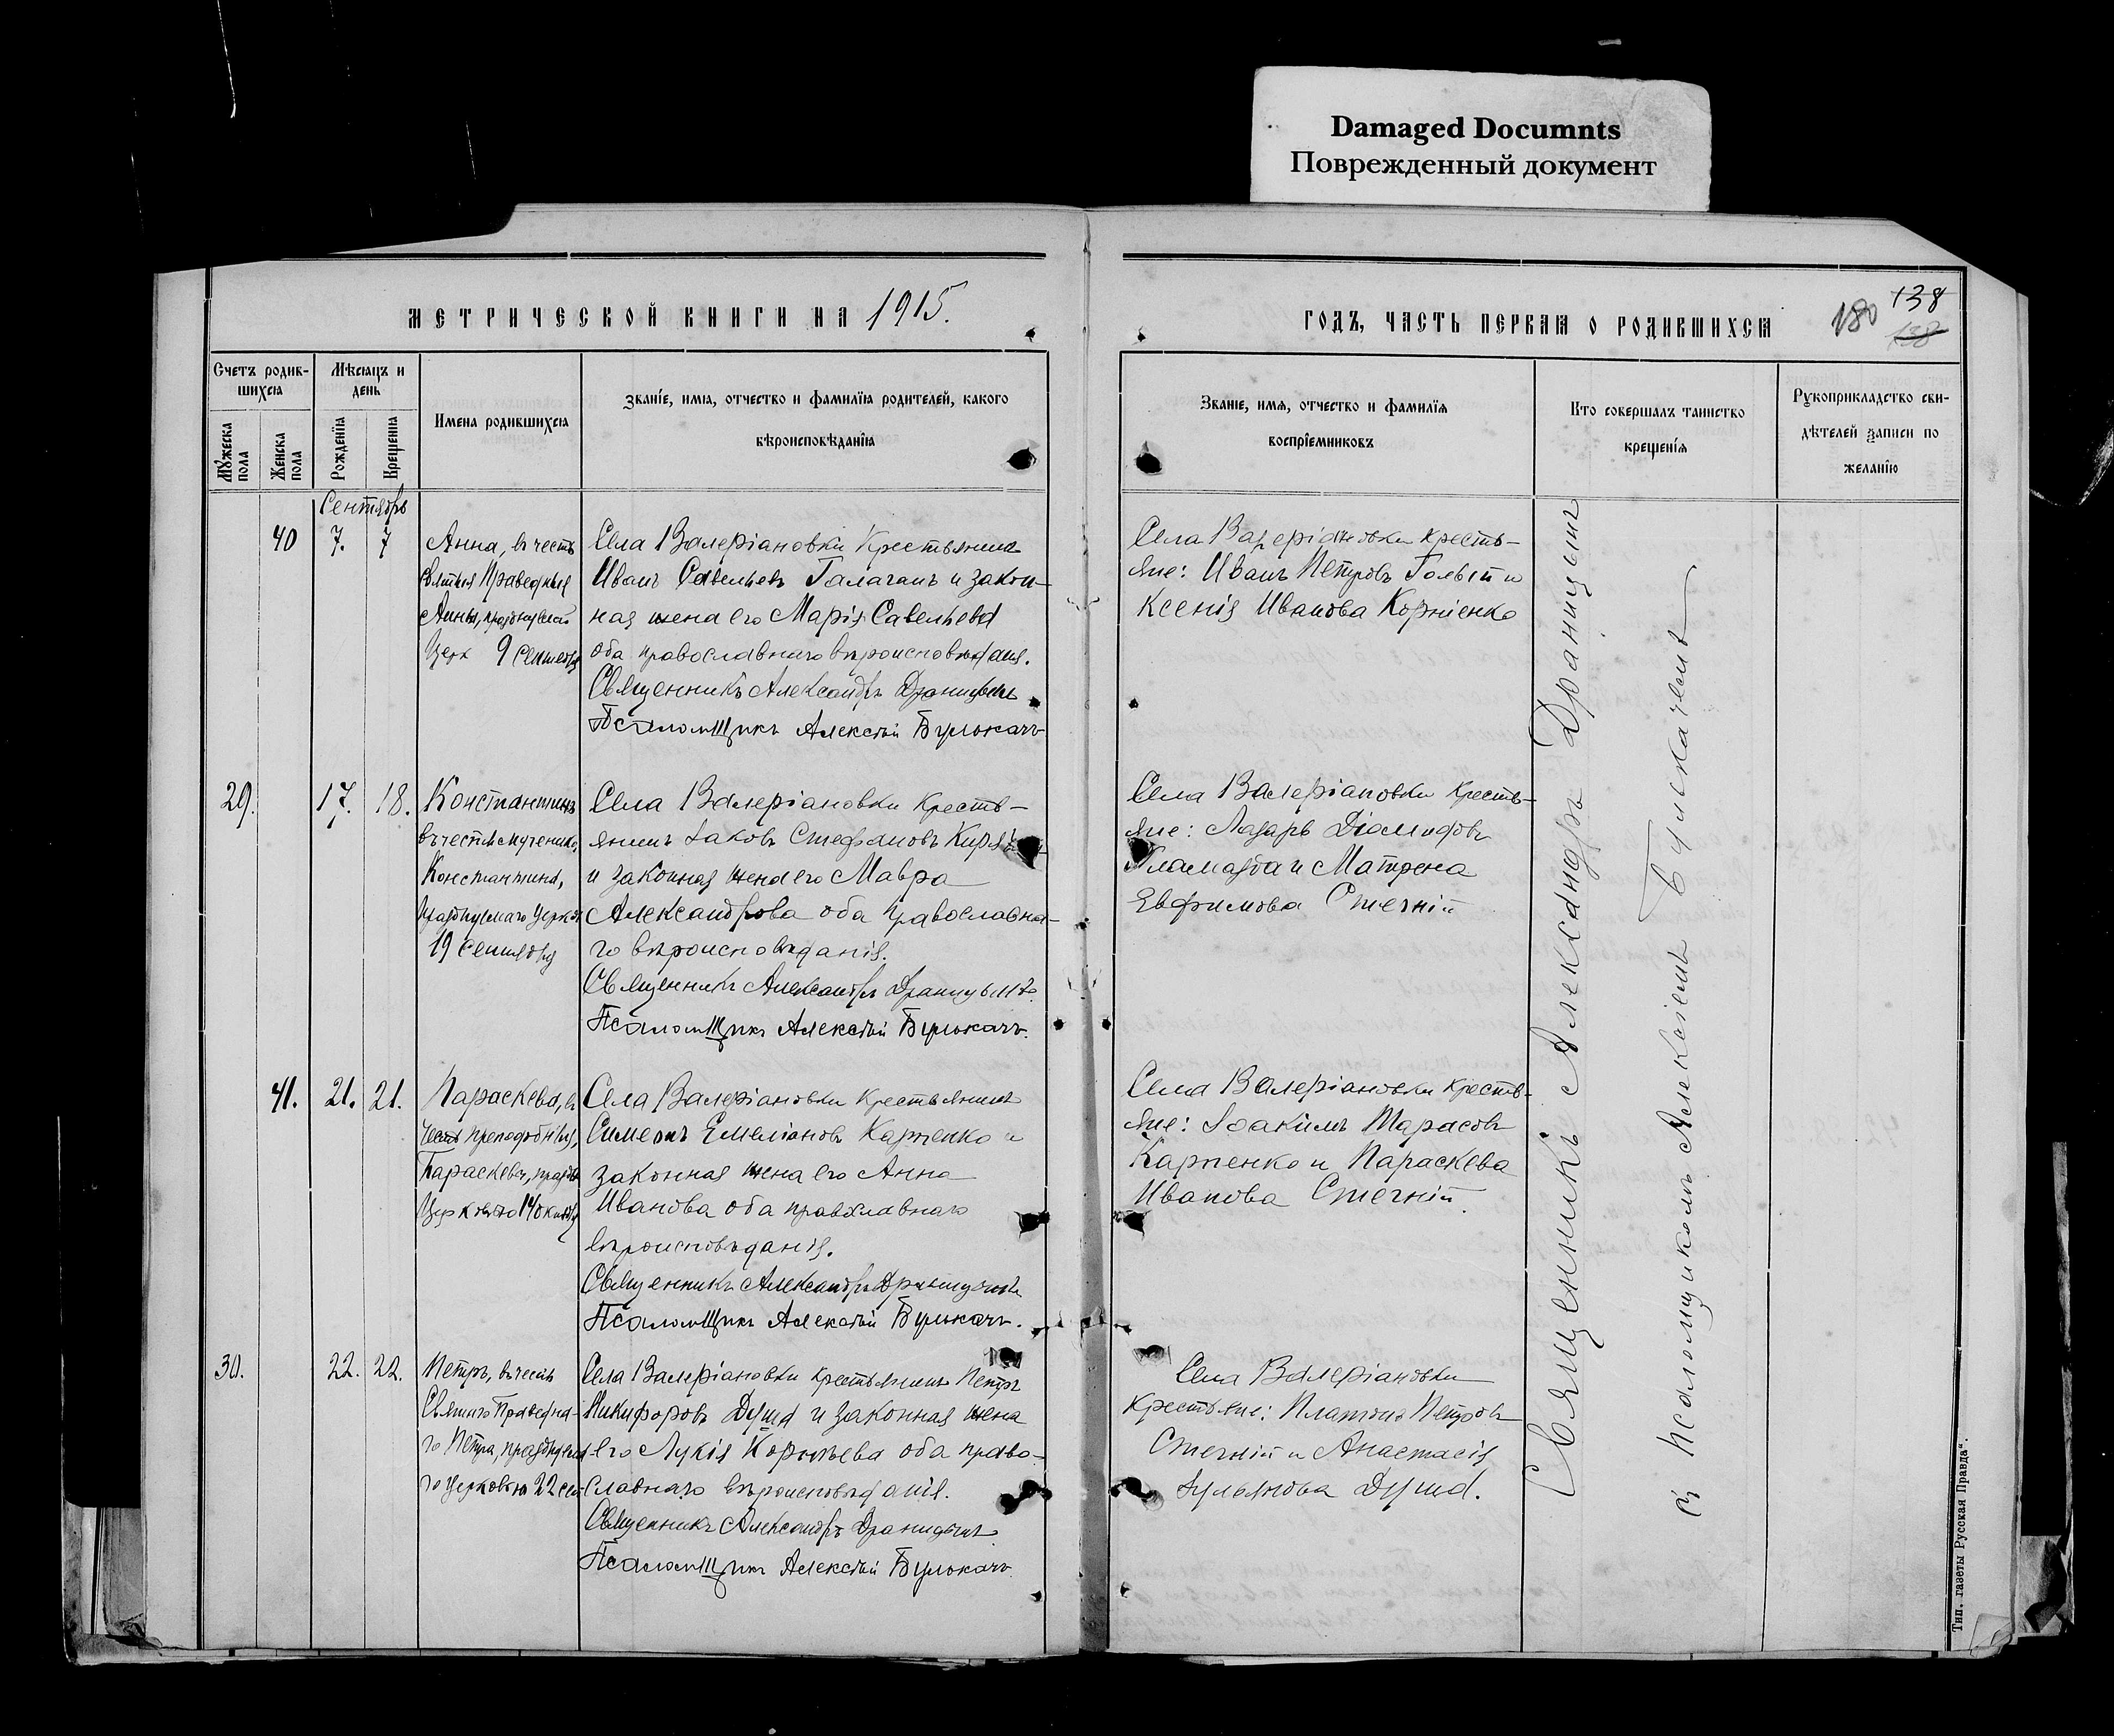 Damaged Documnts
Поврежденный документ
МЕТРИЧЕСКОЙ КНИГИ НА 1915.
Счетъ родив-
шихся
Мѣсяцъ и
день
Мужеска пола
Женска пола
Рожденія
Крещенія
Имена родившихся
Званіе, имя, отчество и фамилія родителей, какого
вѣроисповѣданія
Сентябрь
40
7.
7
Анна, въ честь
Святыя Праведныя
Анны, празднуемой
Церк 9 Сентября
Села Валеріановки Крестьянинъ
Иванъ Савельевъ Галаганъ и закон-
ная жена его Марія Савельева
оба православнаго вѣроисповѣданія.
Священникъ Александръ Драницынъ
Псаломщикъ Алексѣй Булюкачъ
29.
17.
18.
Константинъ
въ честь мученика
Константина,
празднуемаго Церков
19 Сентября
Села Валеріановки Кресть-
янинъ Іаковъ Стефановъ
и законная жена его Мавра
Александрова оба православна-
го вѣроисповѣданія.
Священникъ Александръ Драницынъ
Псаломщикъ Алексѣй Булюкачъ.
41.
21.
21.
Параскева, въ
честь преподобныя
Параскевы, праздн
Церковью 14 октября
Села Валеріановки Крестьянинъ
Симеонъ Емеліановъ Карпенко и
законная жена его Анна
Иванова оба православнаго
вѣроисповѣданія.
Священникъ Александръ Драницынъ
Псаломщикъ Алексѣй Булюкачъ.
30.
22.
22.
Петръ, въ честь
Святаго Праведна-
го Петра, празднуема
го Церковью 22 сен
Села Валеріановки крестьянинъ Петръ
Никифоровъ Душа и законная жена
его Лукія Корнѣева оба право-
славнаго вѣроисповѣданія.
Священникъ Александръ Драницынъ
Псаломщикъ Алексѣй Булюкачъ.
ГОДЪ, ЧАСТЬ ПЕРВАЯ О РОДИВШИХСЯ
180
138
138
Званіе, имя, отчество и фамилія
воспріемниковъ
Кто совершалъ таинство
крещенія
Рукоприкладство сви-
дѣтелей записи по
желанію
Села Валеріановки кресть-
яне: Иванъ Петровъ Голый и
Ксенія Иванова Корніенко
Села Валеріановки Кресть-
яне: Лазарь Діомидовъ
и Матрена
Евфимова Стегній
Села Валеріановки Кресть-
яне: Іоакимъ Тарасовъ
Карпенко и Параскева
Иванова Стегній.
Села Валеріановки
Крестьяне: Платонъ Петровъ
Стегній и Анастасія
Іульянова Душа.
Священникъ Александръ Драницынъ
съ Псаломщикомъ Алексіемъ Булюкачемъ
Тип. газеты Русская Правда".